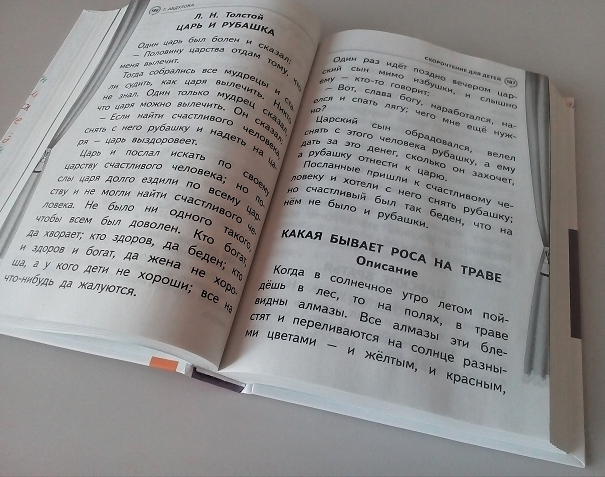 186 Г. АБДУЛОВА
Л. Н. Толстой
ЦАРЬ И РУБАШКА
Один царь был болен и сказал:
— Половину царства отдам тому, кто
меня вылечит.
Тогда собрались все мудрецы и ста-
ли судить, как царя вылечить. Никто
не знал. Один только мудрец сказал,
что царя можно вылечить. Он сказал:
— Если найти счастливого человека,
снять с него рубашку и надеть на ца-
ря — царь выздоровеет.
Царь и послал искать по своему
царству счастливого человека; но по-
слы царя долго ездили по всему цар-
ству и не могли найти счастливого че-
ловека. Не было ни одного такого,
чтобы всем был доволен. Кто богат,
да хворает; кто здоров, да беден; кто
и здоров и богат, да жена не хоро-
ша, а у кого дети не хороши; все на
что-нибудь да жалуются.
СКОРОЧТЕНИЕ ДЛЯ ДЕТЕЙ 187
Один раз идёт поздно вечером цар-
ский сын мимо избушки, и слышно
ему — кто-то говорит:
— Вот, слава богу, наработался, на-
елся и спать лягу; чего мне ещё нуж-
но?
Царский сын обрадовался, велел
снять с этого человека рубашку, а ему
дать за это денег, сколько он захочет,
а рубашку отнести к царю.
Посланные пришли к счастливому че-
ловеку и хотели с него снять рубашку;
но счастливый был так беден, что на
нём не было и рубашки.
КАКАЯ БЫВАЕТ РОСА НА ТРАВЕ
Описание
Когда в солнечное утро летом пой-
дёшь в лес, то на полях, в траве
видны алмазы. Все алмазы эти бле-
стят и переливаются на солнце разны-
ми цветами — и жёлтым, и красным,